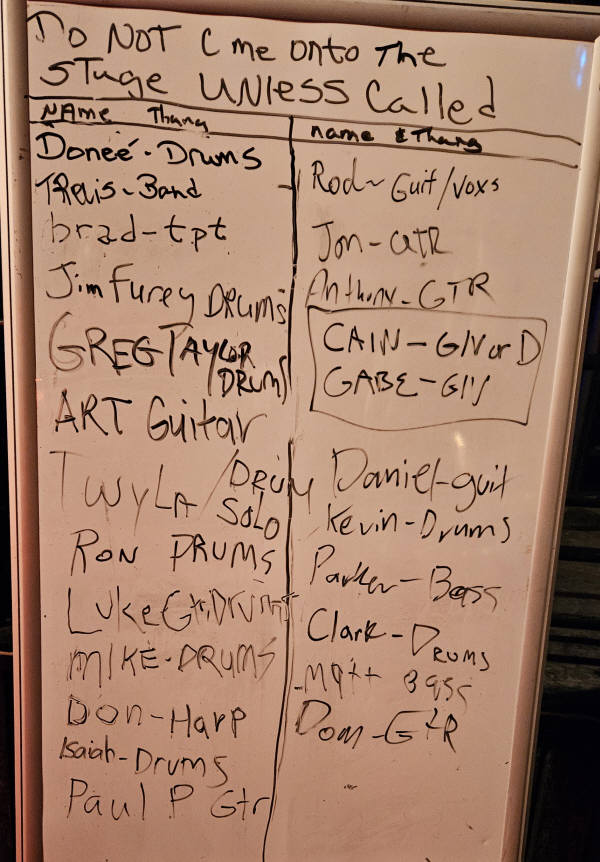 Do NOT C me onto The
STage UNLESS Called
NAme Thang
Doneé - Drums
TRevis - Band
brad - tpt
Jim Furey DRums
GREG TAYLOR
DRUMS
ART Guitar
TWYLA / DRUM
SOLO
RON DRUMS
Luke Gtr, Drums
MIKE - DRUMS
Don - Harp
Isaiah - Drums
Paul P Gtr
name & Thang
Rod ~ Guit/voxs
Jon - GTR
Anthony - GTR
CAIN - G/V or D
GABE - G/V
Daniel - guit
Kevin - Drums
Parker - Bass
Clark - DRums
Matt Bass
Dom - GtR